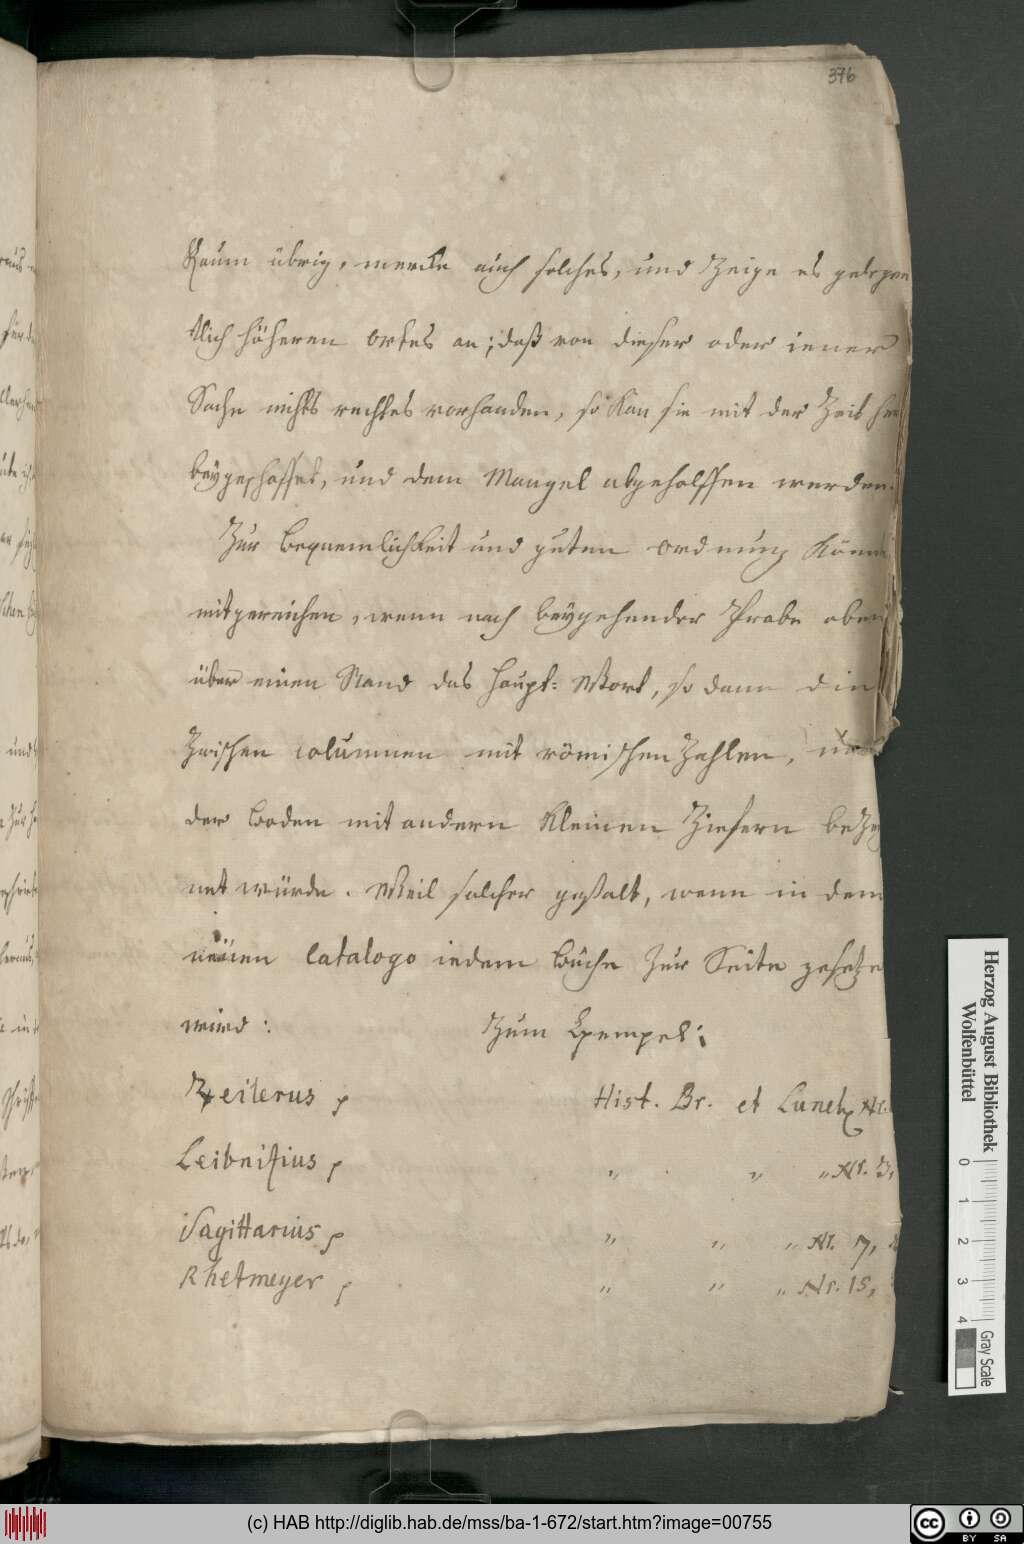 376
Raum übrig, mercke auch solches, und Zeige es gele gen
tlich höheren ortes an; daß von dieser oder iener
Sache nichts rechtes vorhanden, so Kan sie mit der Zeit
beygeschaffet, und dem Mangel abgeholffen werden.
Zur bequemlichKeit und guten ordnung Könn
mitgereichen, wenn nach beygehender Probe oben
über einen Stand das Haupt= Wort, so dann die
Zwischen columnen mit römischen Zahlen, und
der boden mit andern Kleinen Ziefern beZei
net würde. Weil solcher gestalt, wenn in dem
neüen Catalogo iedem buche Zur Seite gesetze
wird: Zum Exempel:
Hist. Br. et Luneb. Nr.
Leibnitius „ „ „ Nr. 3,
Sagittarius „ „ „ Nr. 7,
Rhetmeyer „ „ „ Nr. 15,
Herzog August Bibliothek
Wolfenbüttel
0 1 2 3 4
Gray Scale
(c) HAB http://diglib.hab.de/mss/ba-1-672/start.htm?image=00755
cc BY SA